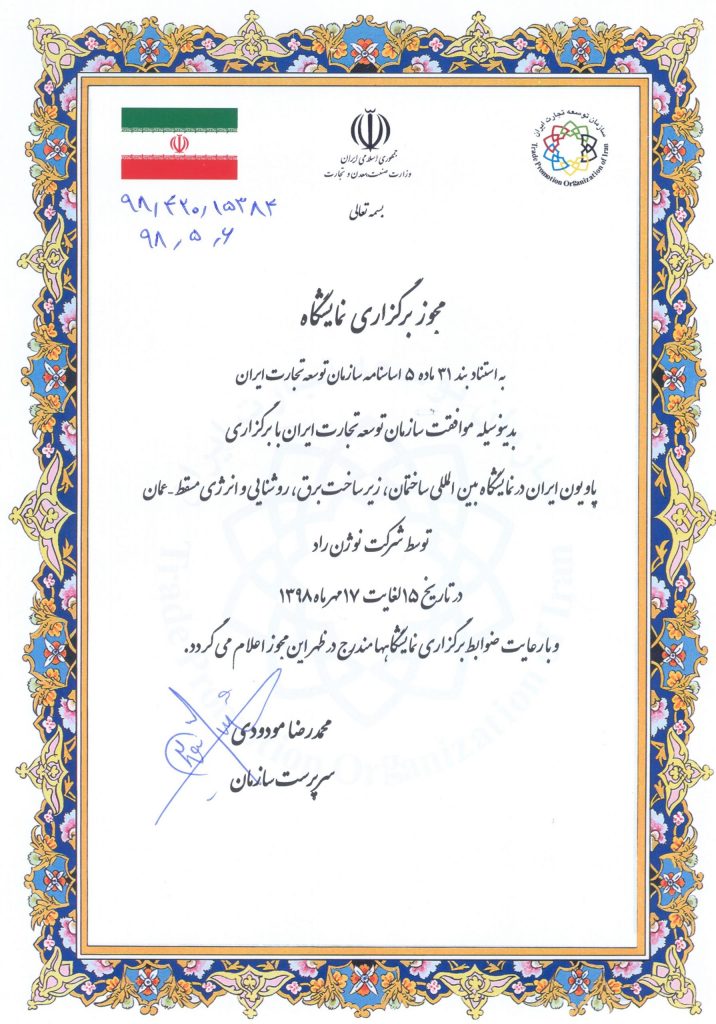 سازمان توسعه تجارت ایران
Trade Promotion Organization of Iran
جمهوری اسلامی ایران
وزارت صنعت، معدن و تجارت
۹۸٫۴۲۰٫۱۵۳۸۴
۹۸٫۵٫۶
بسمه تعالی
مجوز برگزاری نمایشگاه
به استناد بند ۳۱ ماده ۵ اساسنامه سازمان توسعه تجارت ایران
بدینوسیله موافقت سازمان توسعه تجارت ایران با برگزاری
پاویون ایران در نمایشگاه بین المللی ساختمان، زیرساخت برق، روشنایی و انرژی مسقط - عمان
توسط شرکت نوژن راد
در تاریخ ۱۵ لغایت ۱۷ مهرماه ۱۳۹۸
و با رعایت ضوابط برگزاری نمایشگاهها مندرج در ظهر این مجوز اعلام می گردد.
محمدرضا مودودی
سرپرست سازمان
Trade Promotion Organization of Iran